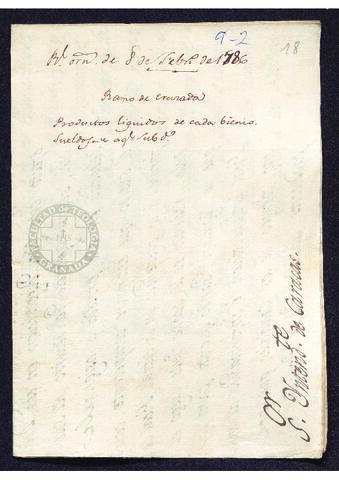 9-2
18
Rl. orn. de 8 de Febro. de 1786
Ramo de cruzada
Productos liquidos de cada bienio.
Sueldos
FACULTAD TEOLOGICA
GRANADA
Sor. Yntendte. de Caracas.